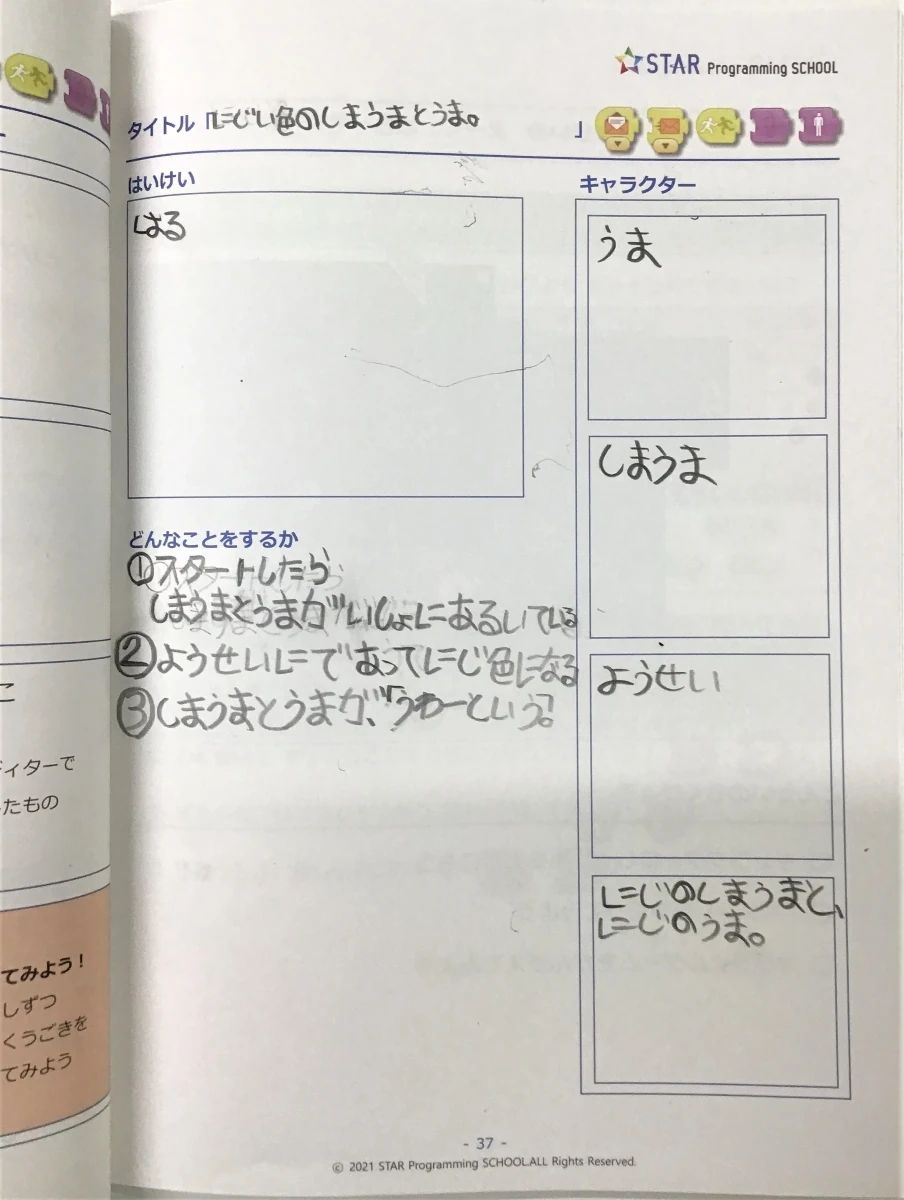 STAR Programming SCHOOL
タイトル「にじい色のしまうまとうま。」
はいけい
はる
キャラクター
うま
しまうま
ようせい
にじのしまうまと、
にじのうま。
どんなことをするか
①スタートしたら
しまうまとうまがいしょにあるいている
②ようせいにであってにじ色になる
③しまうまとうまが、「うわーという。」
こ
ディターで
したもの
てみよう!
しずつ
くうごきを
てみよう
- 37 -
© 2021 STAR Programming SCHOOL.ALL Rights Reserved.